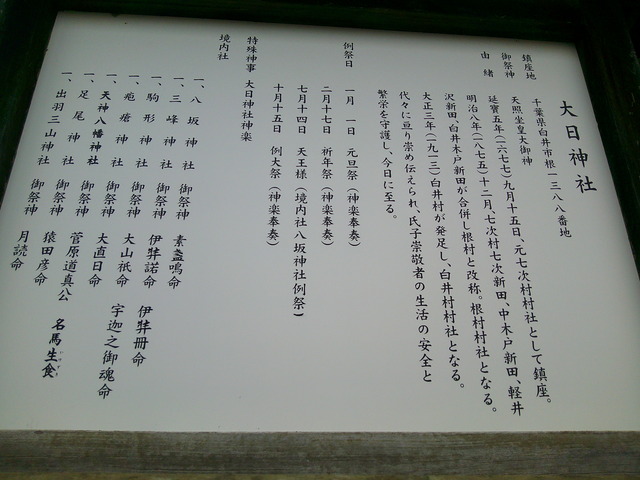 大日神社
鎮座地　千葉県白井市根一三八八番地
御祭神　天照坐皇大御神
由緒　延寶五年(一六七七)九月十五日、元七次村村社として鎮座。
明治八年(一八七五)十二月、七次村七次新田、中木戸新田、軽井
沢新田、白井木戸新田が合併し根村と改称。根村村社となる。
大正三年(一九一三)白井村が発足し、白井村村社となる。
代々に亘り崇め伝えられ、氏子崇敬者の生活の安全と
繁栄を守護し、今日に至る。
例祭日　一月一日　元旦祭(神楽奉奏)
二月十七日　祈年祭(神楽奉奏)
七月十四日　天王様(境内社八坂神社例祭)
十月十五日　例大祭(神楽奉奏)
特殊神事　大日神社神楽
境内社
一、八坂神社　御祭神　素盞鳴命
一、三峰神社　御祭神　伊弉諾命　伊弉冊命
一、駒形神社　御祭神　大山祇命　宇迦之御魂命
一、疱瘡神社　御祭神　大直日命
一、天神八幡神社　御祭神　菅原道真公　名馬生食
一、足尾神社　御祭神　猿田彦命
一、出羽三山神社　御祭神　月読命